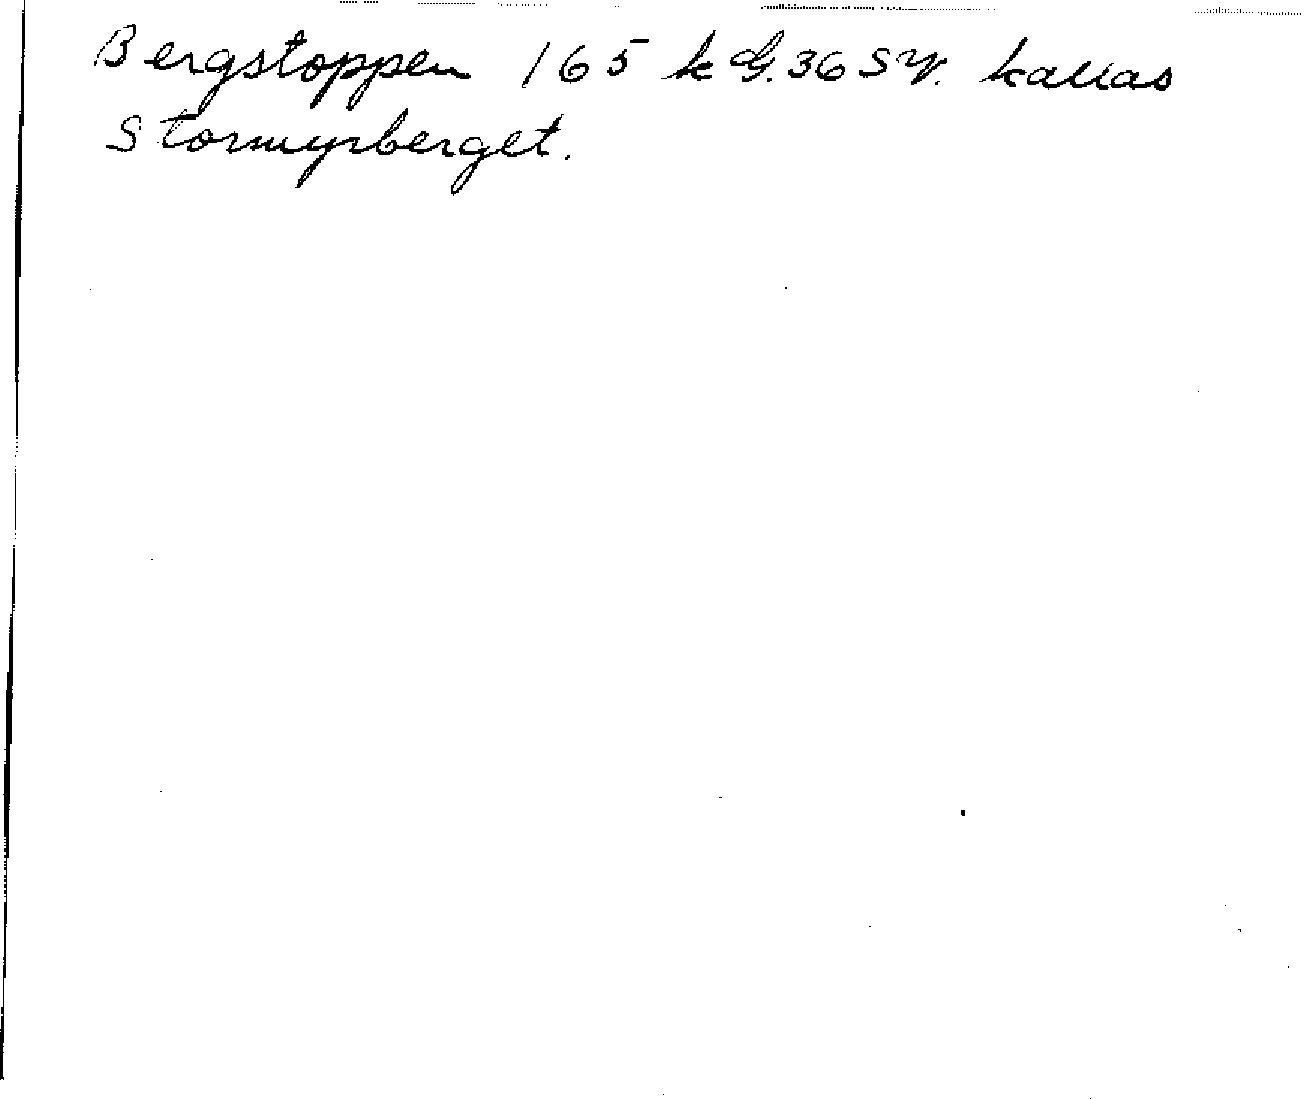 Bergstoppen 165 k G. 36 SV. kallas
Stormyrberget.